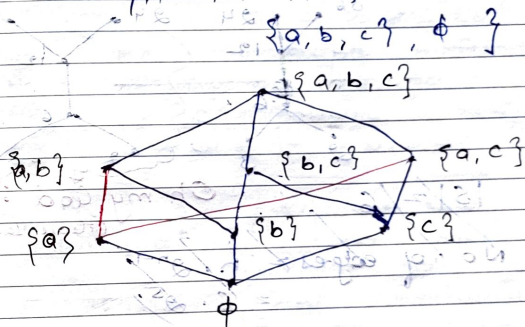 {a, b, c} , ϕ }
{a, b, c}
{a,b}
{b, c}
{a, c}
{a}
{b}
{c}
ϕ